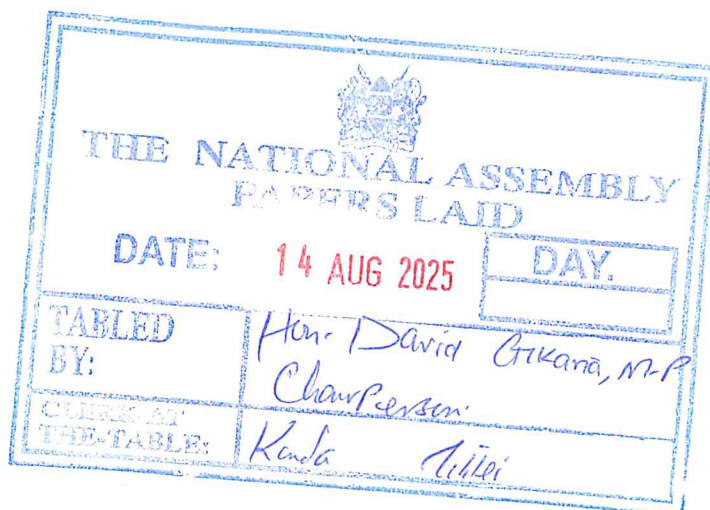 THE NATIONAL ASSEMBLY
PAPERS LAID
DATE: 14 AUG 2025 DAY.
TABLED BY: Hon. David Gikaria, M.P
Chairperson
CLERK AT THE-TABLE: